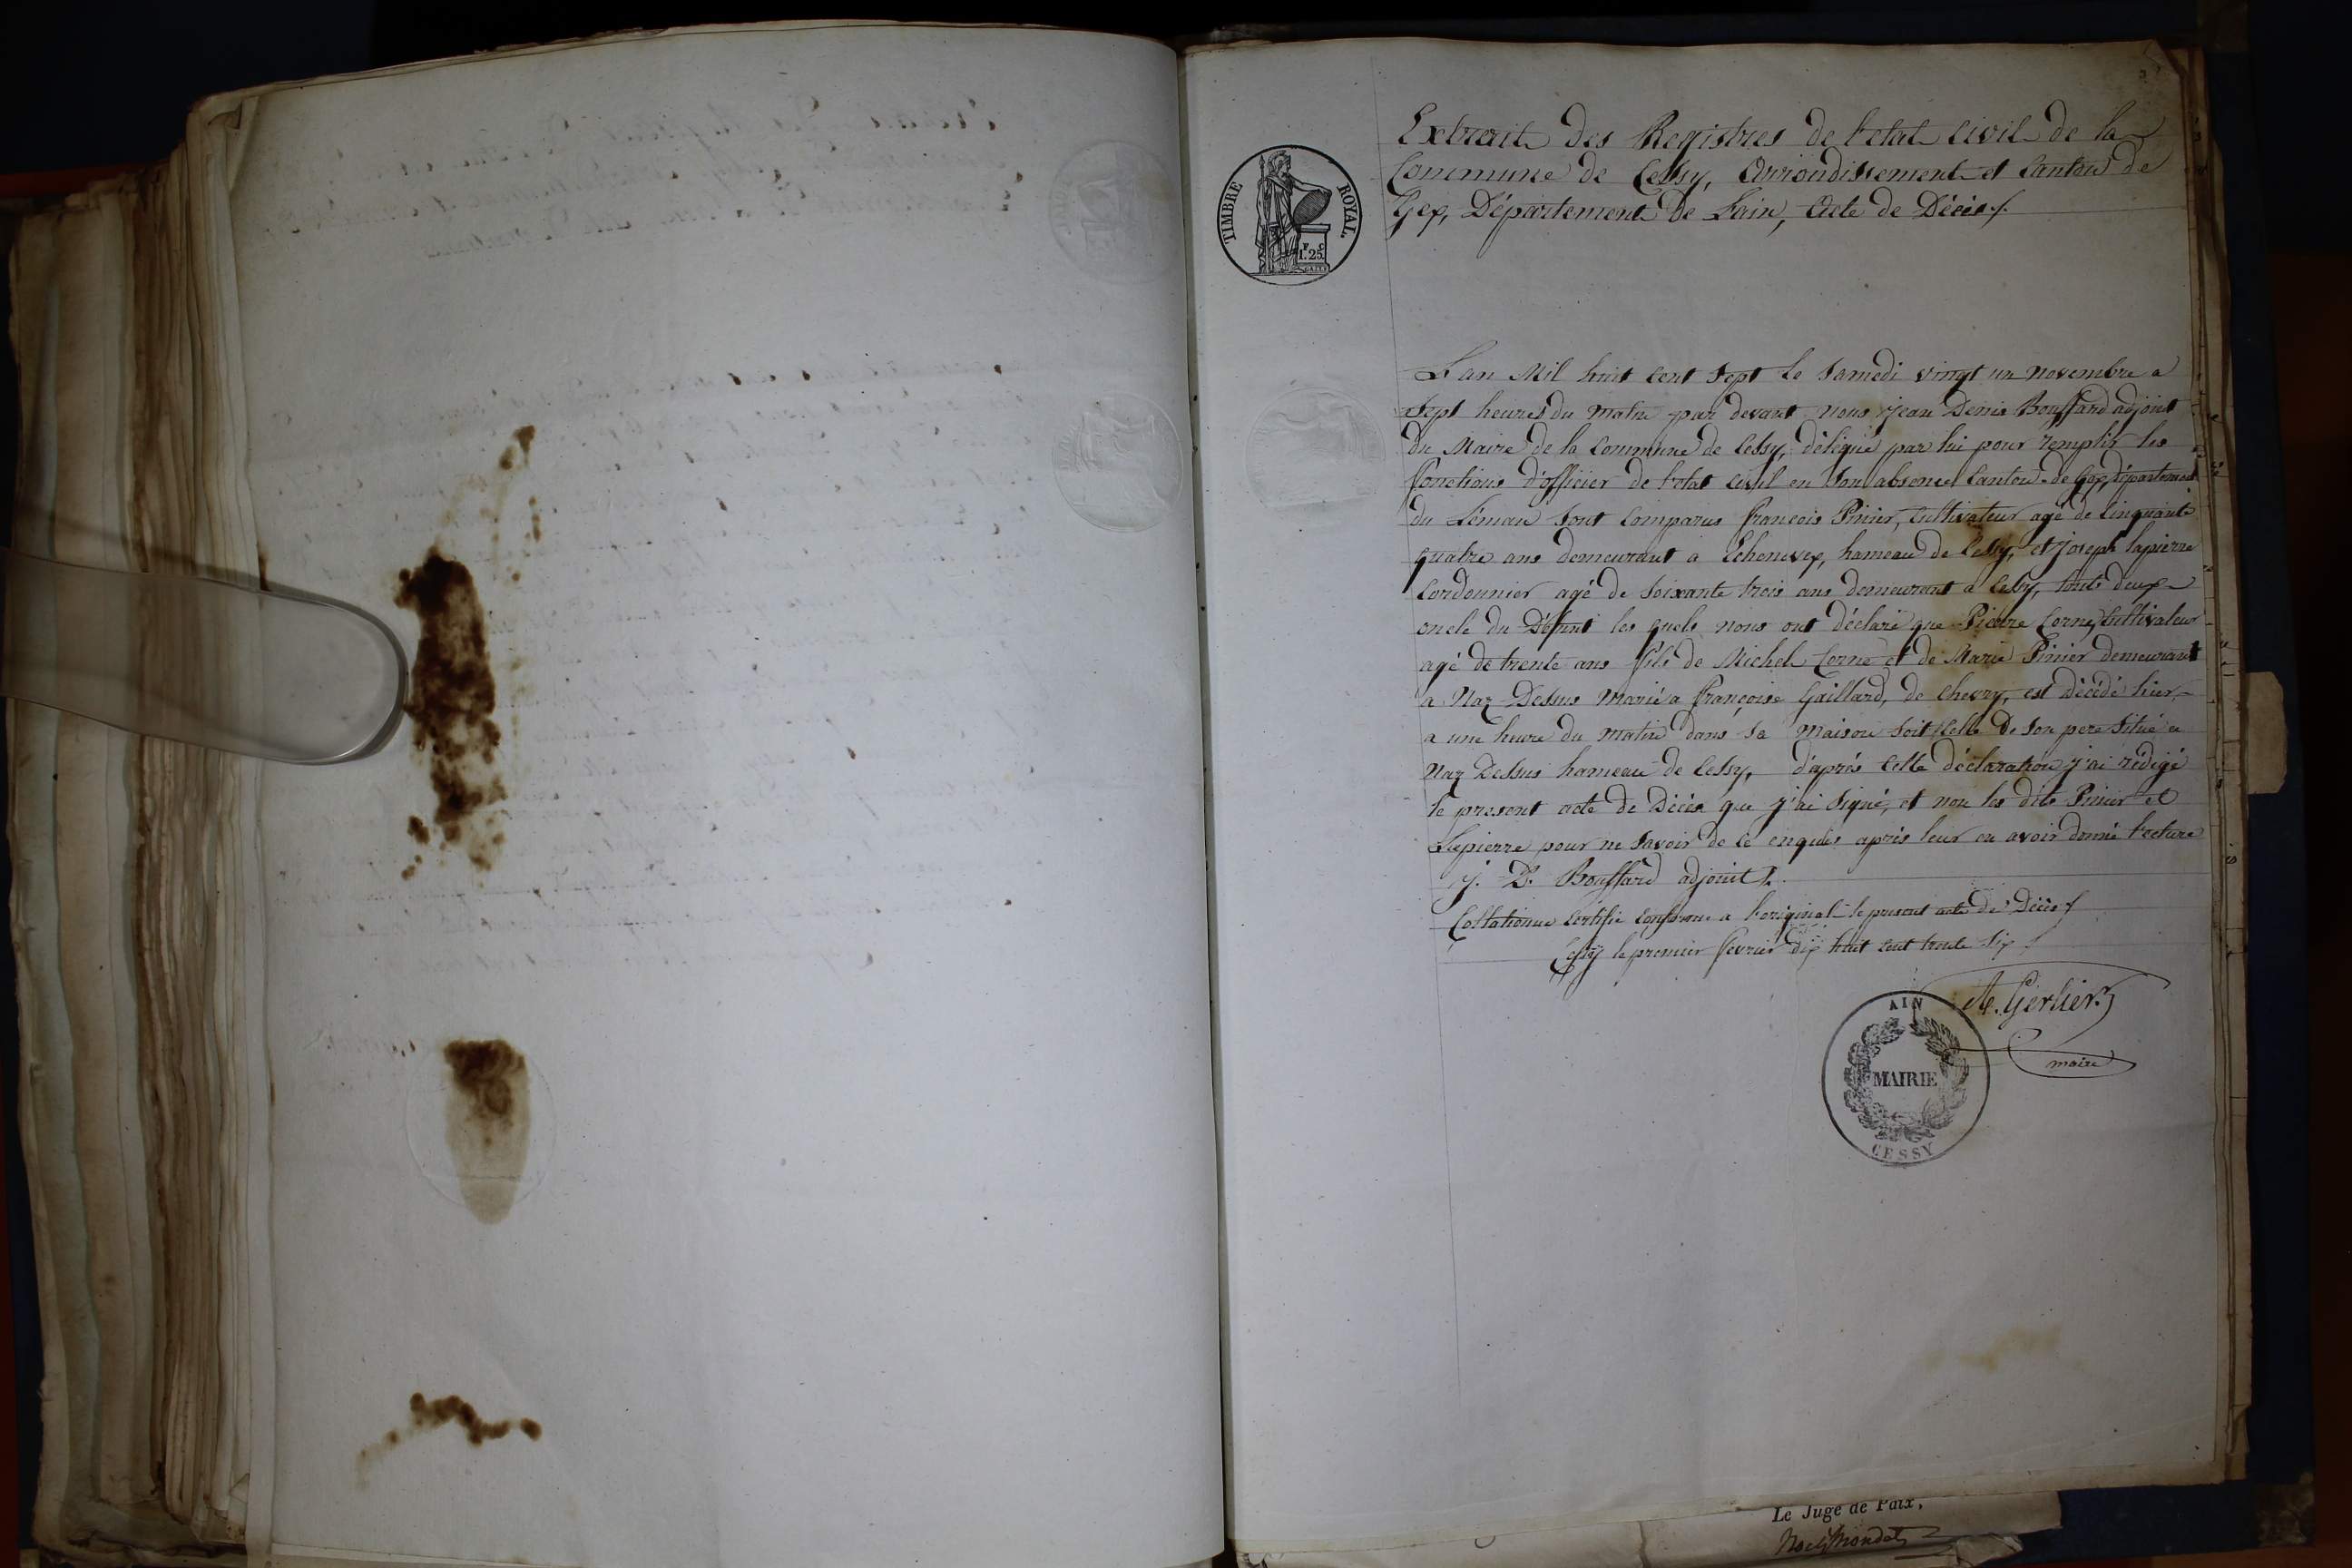 Extrait des Registres de l'etat civil de la
Commune de Cessy, Arrondissement et Canton de
Gex, Département de Lain, Acte de Décès /.
TIMBRE ROYAL.
F C
1. 25.
L'an Mil huit cent sept le samedi vingt un novembre a
sept heures du matin par devant nous jean Denis Bouffard adjoint
du Maire de la commune de Cessy, délégué par lui pour remplir les
fonctions d'officier de l'etat civil en son absence Canton de Gex, département
du Léman sont comparus françois Pinier, cultivateur agé de cinquante
quatre ans demeurant a Echenevex, hameau de Cessy, et joseph lapierre
Cordonnier agé de soixante trois ans demeurant a Cessy, touts deux
oncle du Défunt les quels nous ont déclaré que Pierre Corne, Cultivateur
agé de trente ans fils de Michel Corne et de Marie Pinier demeurant
a Naz Dessus marié a françoise Gaillard, de Chevry, est décédé hier
a une heure du matin dans sa maison soit celle de son pere situé a
Naz Dessus hameau de Cessy, d'après cette déclaration j'ai rédigé
le present acte de Décès que j'ai signé, et non les dits Pinier et
Lapierre pour ne savoir de ce enquis après leur en avoir donné lecture
j. D. Bouffard adjoint /.
Collationné certifié conforme a l'original le present acte de Décès /
Cessy le premier fevrier dix huit cent trente six /.
A. Gerlier
maire
AIN
MAIRIE
CESSY
Le Juge de Paix,